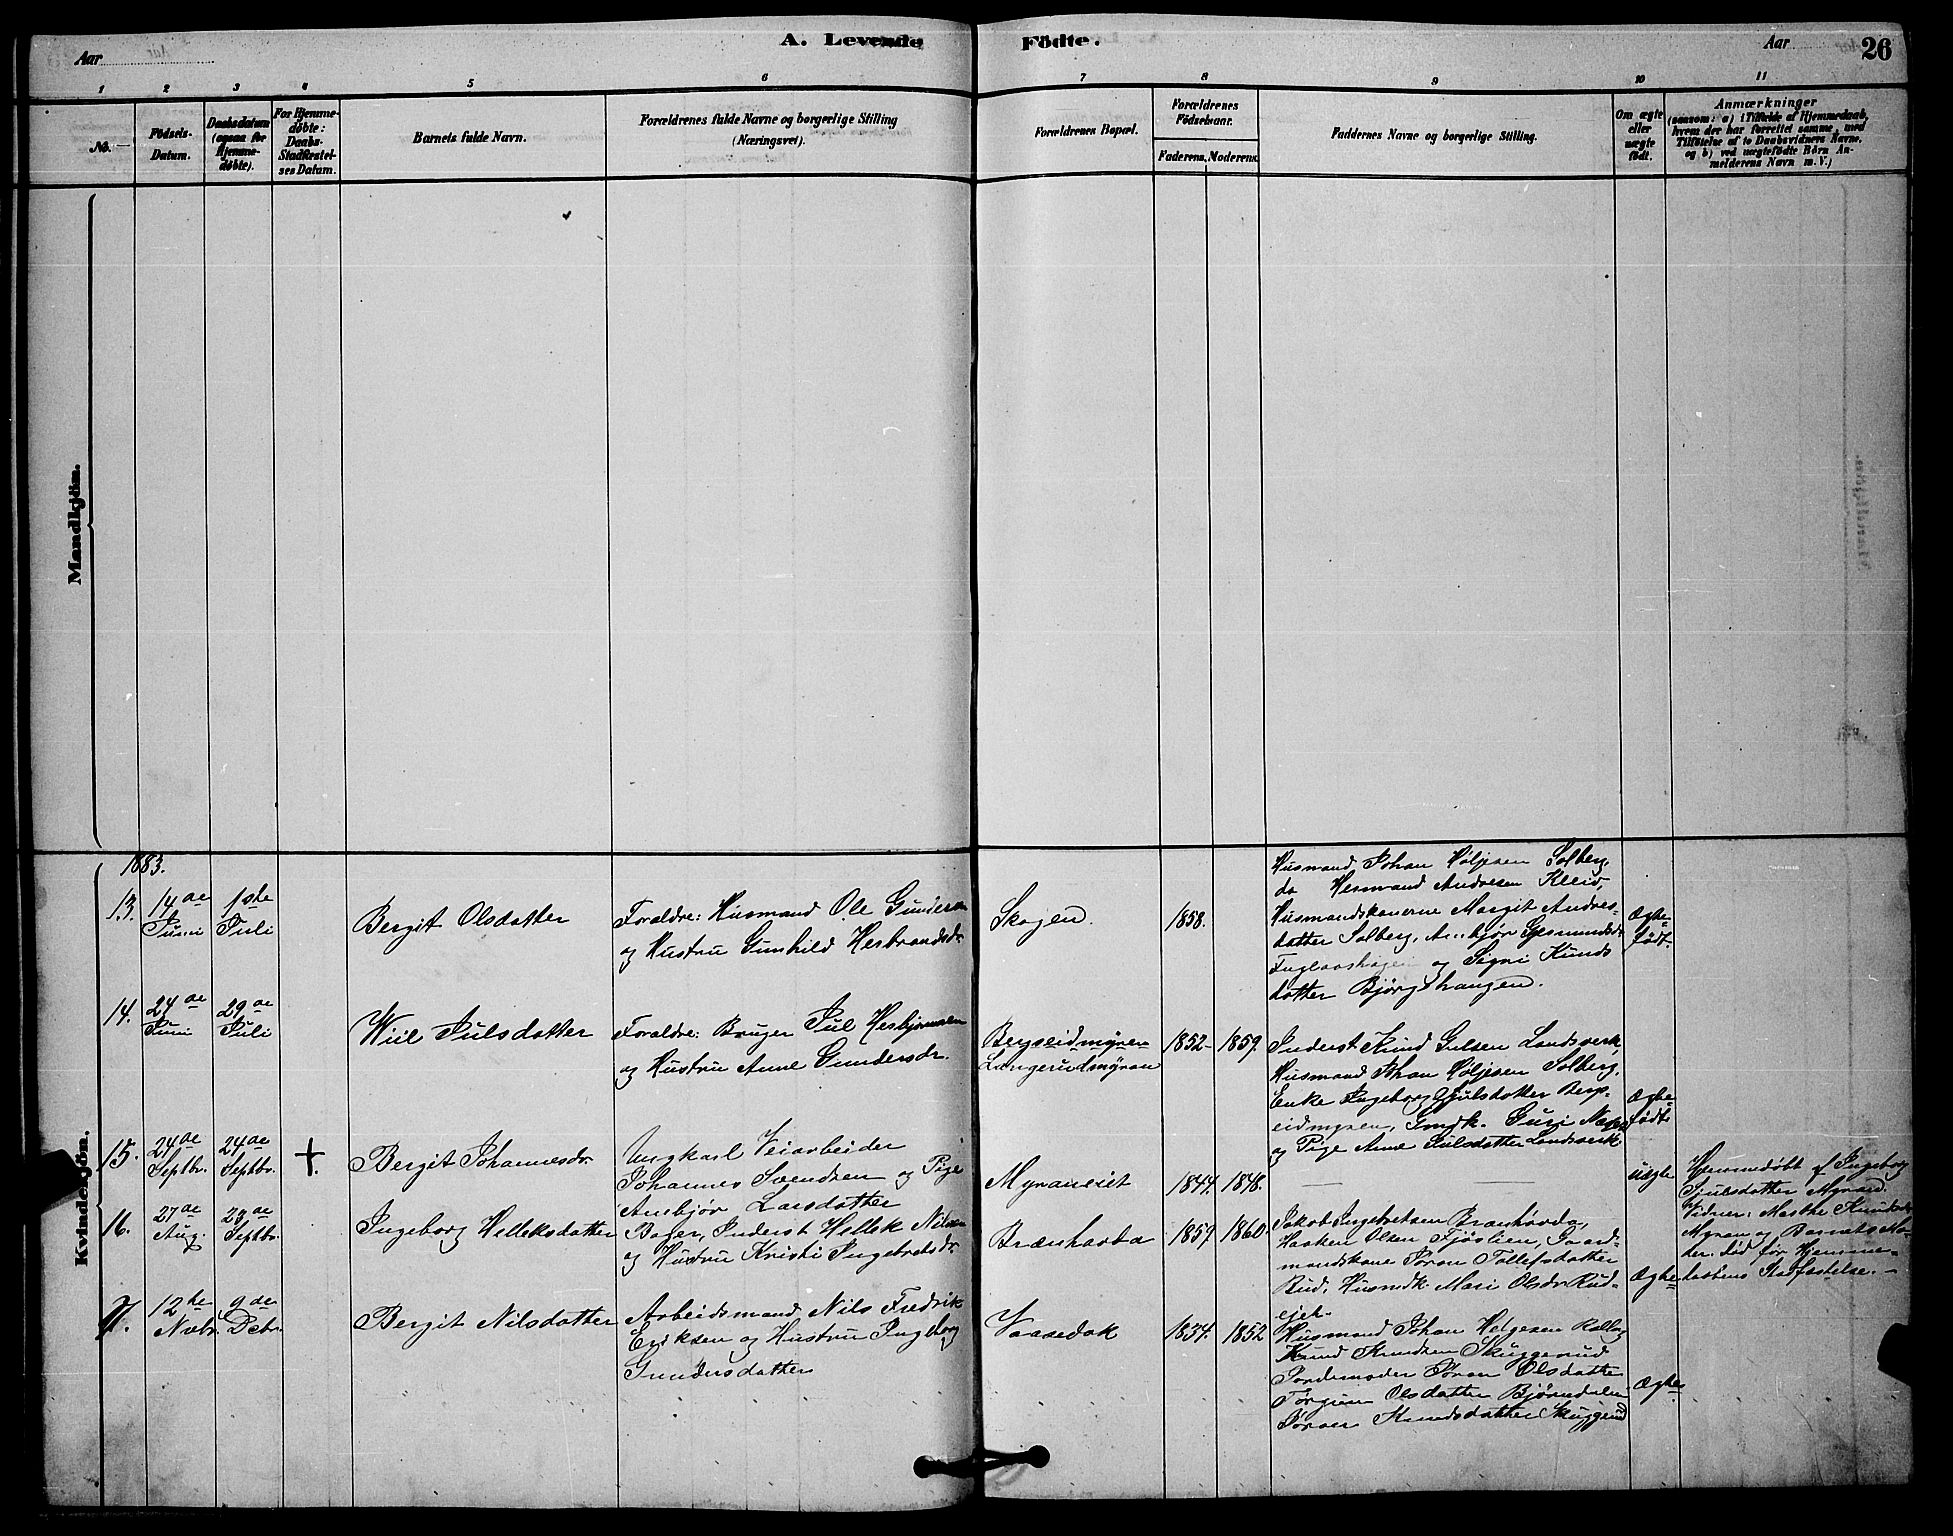 A. Levende Fødte.
Aar
Aar
26
1 2 3 4 5 6 7 8 9 10 11
No.
Fødsels-
Datum.
Daabsdatum
(ogsaa for
Hjemme-
døbte).
For Hjemme-
døbte:
Daabs-
Stadfæstel-
ses Datum.
Barnets fulde Navn.
Forældrenes fulde Navne og borgerlige Stilling
(Næringsvei).
Forældrenes Bopæl.
Forældrenes
Fødselsaar.
Faderens. Moderens.
Faddernes Navne og borgerlige Stilling.
Om ægte
eller
uægte
født.
Anmærkninger
(saasom: a) i Tilfælde af Hjemmedaab,
hvem der har forrettet samme, med
Tilføielse af to Daabsvidners Navne,
og b) ved uægtefødte Børn An-
melderens Navn m. V.)
Mandkjøn.
Kvindekjøn.
1883.
13.
14de
Juni
1ste
Juli
Bergit Olsdatter
Foraldre: Husmand Ole Gundersen
og Hustru Gunhild Herbrandsdr.
Skogen.
1858.
Husmand Johan Høljesen Solberg,
do Hermand Andresen Kleiv,
Husmandskonerne Margit Andres-
datter Solberg, Annbjør Gjermundsd.
og Signi Knuds
datter Bjørgshaugen.
Ægte
født.
14.
24de
Juni
29de
Juli
Wiel Julsdatter
Foraldre: Bruger Jul Herbjørnsen
og Hustru Anne Gundersdr.
Bergseidmyren
Langerudmyran
1852- 1859.
Inderst Knud Gulsen Landsverk,
Husmand Johan Høljesen Solberg,
Enke Ingeborg Gjulsdatter Berg-
eidmyren, Gmdk. Guri
og Pige Anne Julsdatter Landsverk
Ægte
født
15.
24de
Septbr.
24de
Septbr.
+.
Bergit Johannesdr.
Ungkarl Veiarbeider
Johannes Svendsen og Pige
Annbjør Larsdatter
Myraneiet
1844. 1848.
uægte
Hjemmedøbt af Ingeborg
Gjulsdatter Myran.
Vidner: Marthe Knudsd.
Myran og Barnets Mo-
der. Død før Hjemme-
daabens Stadfæstelse. -
16.
27de
Aug.
23de
Septbr.
Ingeborg Helleksdatter
Bager, Inderst Hellek Nilsen
og Hustru Kristi Ingebretsdr.
Brænhovda
1859 1860.
Jakob Ingebretsen Brænhovda,
Haaken Olsen Fjøslien, Gaard-
mandskone Jøran Tollefsdatter
Rud, Husmdk. Mari Olsdr. Rud-
ejet.
Ægte
17.
12te
Novbr.
9de
Decbr.
Bergit Nilsdatter
Arbeidsmand Nils Fredrik
Eriksen og Hustru Ingeborg
Gundersdatter
Vaasedok
1834. 1852
Husmand Johan Helgesen Rollag
Knud Knudsen Skuggerud
Jordemoder Jøran Olsdatter
Torgun Olsdatter Bjørndalen
Jøran Knudsdatter Skuggerud
Ægte